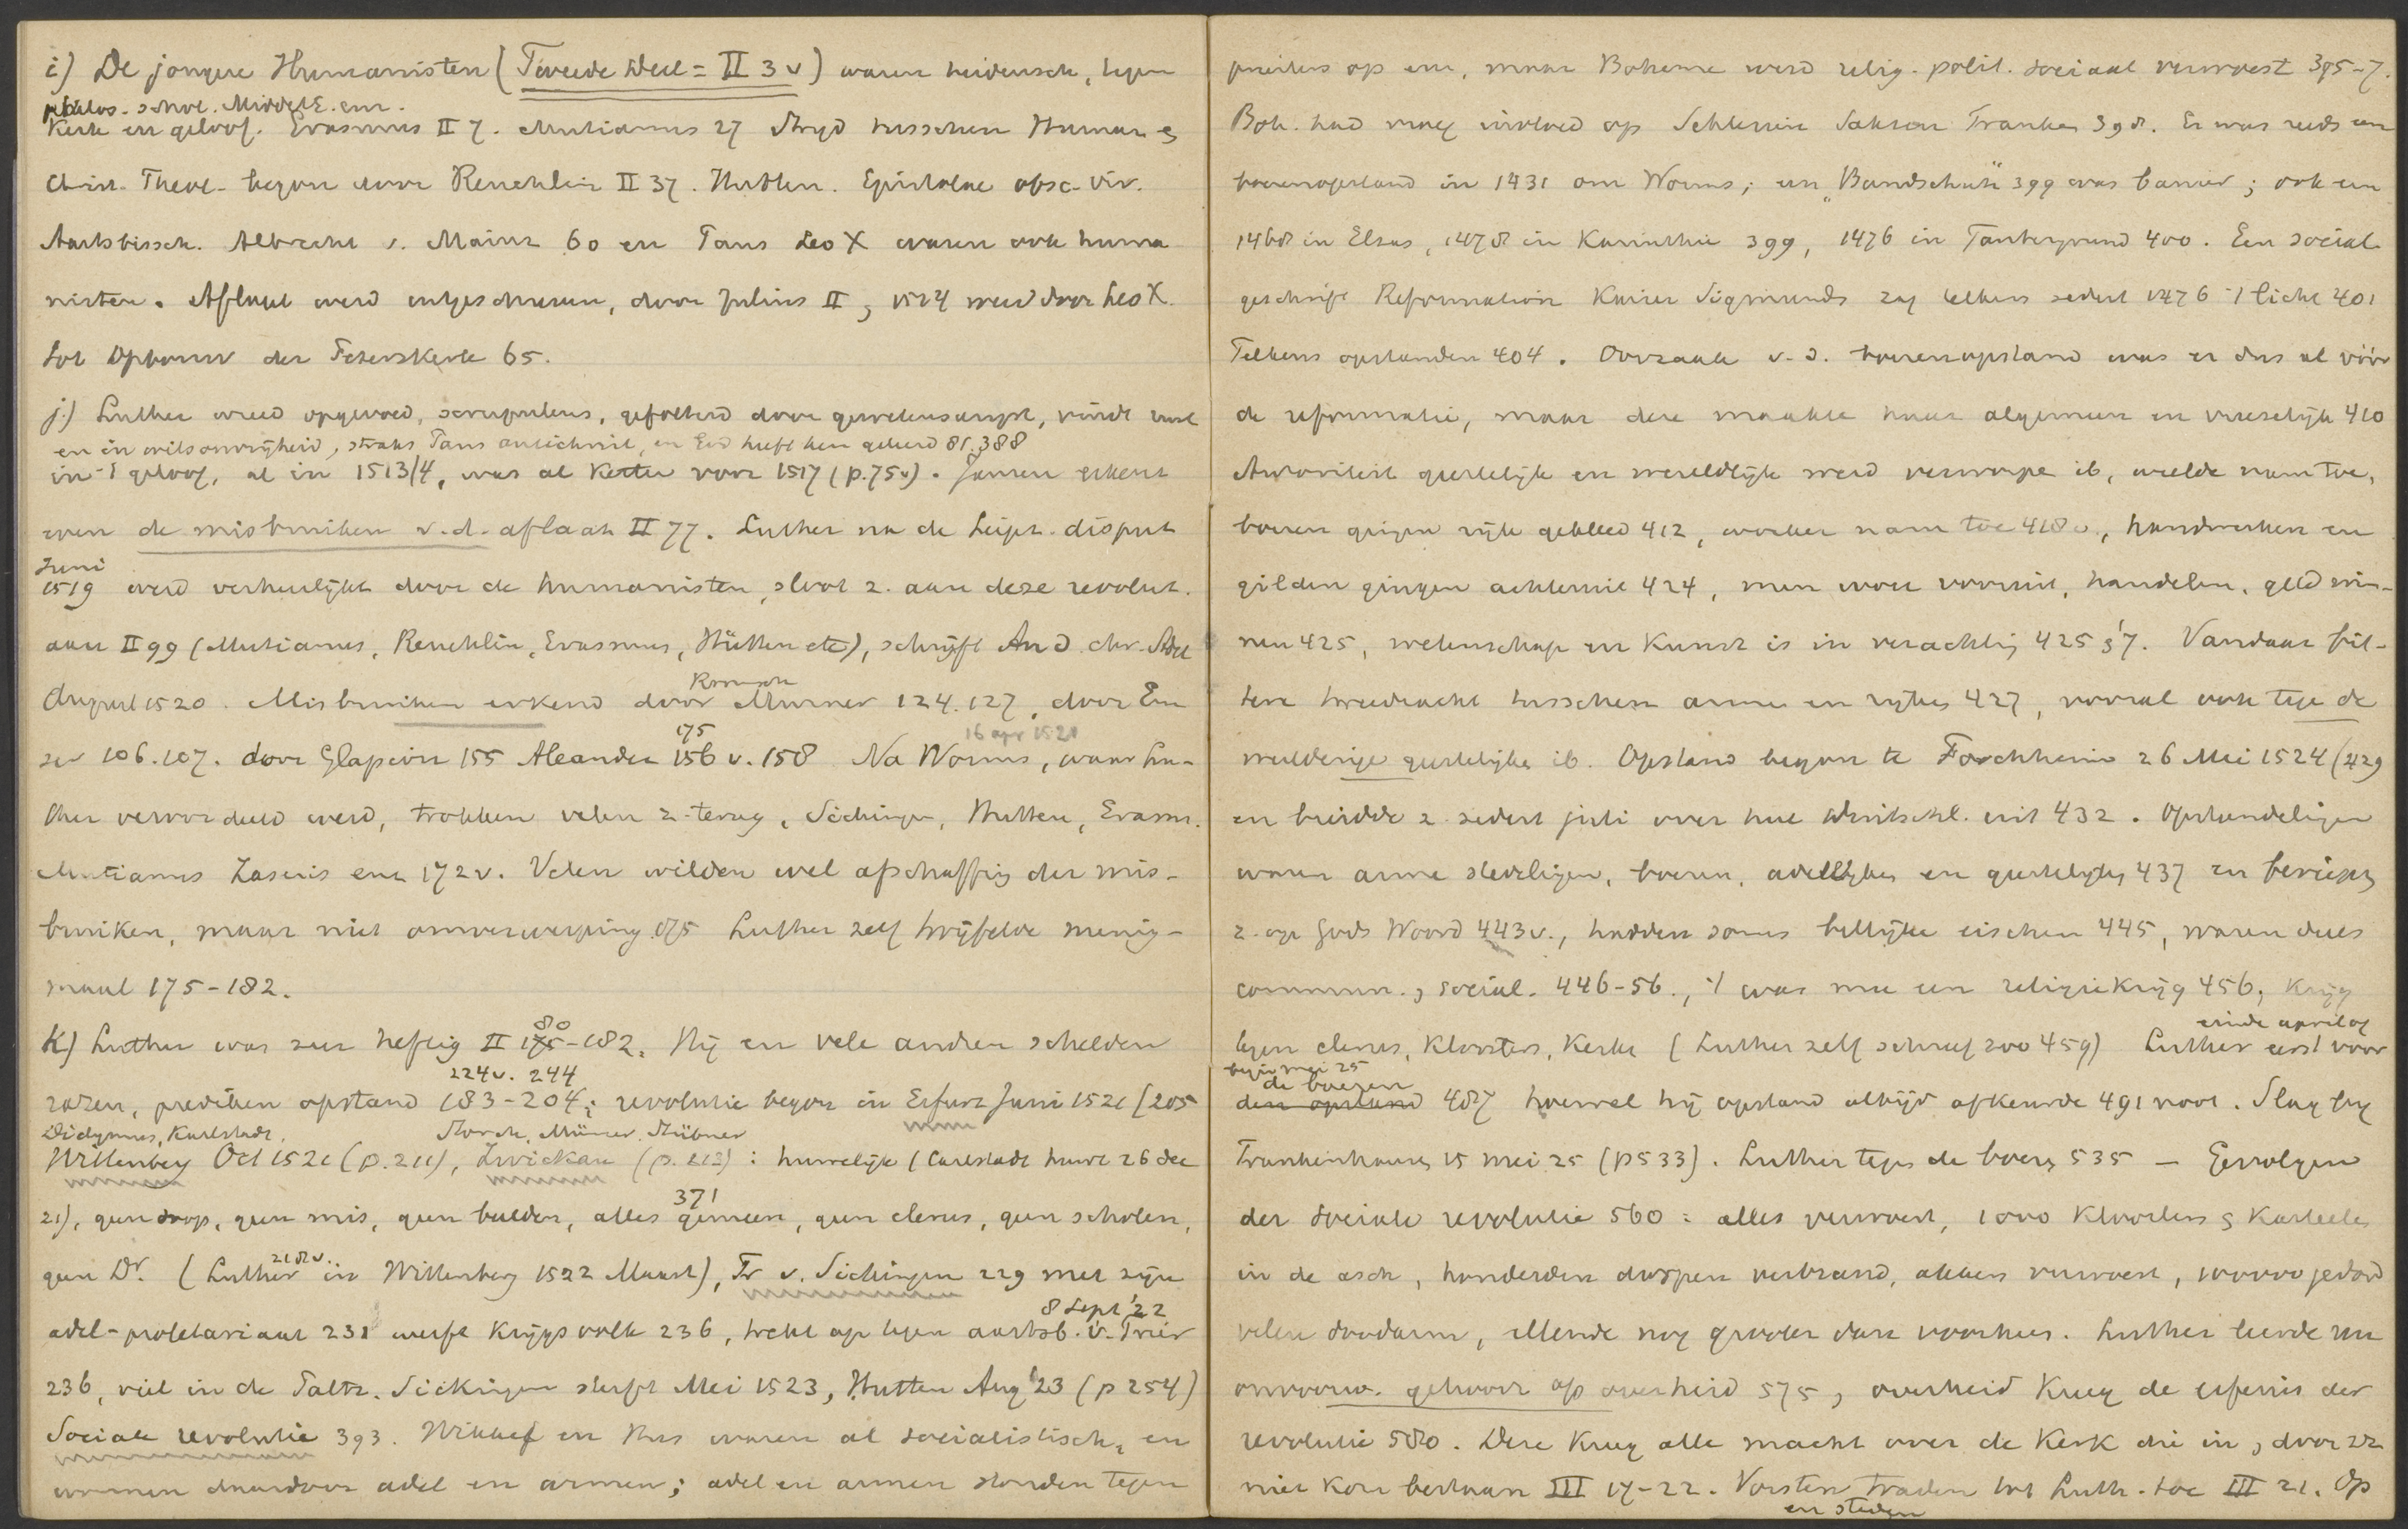 i) De jongere Humanisten (Tweede Deel = II 3 v) waren heidensch, tegen
philos. schol. Middel E. enz.
Kerk en geloof. Erasmus II 7. Mutianus 27 Stryd tusschen Human &
Christ. Theol. begon door Reuchlin II 37. Hutten. Epistolae obsc. vir.
Aartsbissch. Albrecht v. Mainz 60 en Paus Leo X waren ook huma
nisten. Aflaat werd uitgeschreven, door Julius II, 1514 weer door Leo X.
tot Opbouw der Peterskerk 65.
j.) Luther werd opgevoed, scrupuleus, gefolterd door gewetensangst, vindt rust
en in wilsonvrijheid, straks Paus antichrist, en God heeft hem geleerd 81. 388
in 't geloof, al in 1513/4, was al Ketter voor 1517 (p. 75 v). Jansen erkent
even de misbruiken v. d. aflaat II 77. Luther na de Leipz. disput
Juni
1519 werd verheerlijkt door de humanisten, sloot z. aan deze revolut.
aan II 99 (Mutianus, Reuchlin, Erasmus, Hütten etc), schrijft An d. chr. Adel
August 1520. Misbruiken erkend door Murner 124. 127, door Em
175
16 apr 1521
ser 106. 107. door Glapion 155 Aleander 156 v. 158 Na Worms, waar Lu-
ther veroordeeld werd, trokken velen z. terug, Sickingen, Hutten, Erasm.
Mutianus Zasius enz 172 v. Velen wilden wel afschaffing der mis-
bruiken, maar niet omverwerping 175 Luther zelf twijfelde menig-
maal 175-182.
80
k) Luther was zeer heftig II 175-182. Hij en vele andren schelden
224 v. 244
razen, prediken opstand 183-204; revolutie begon in Erfurt Juni 1521 (205
Didymus, Karlstadt, Storch, Münzer, Stübner
Wittenberg Oct 1521 (p. 211), Zwickau (p. 212): huwelijk (Carlstadt huwt 26 dec
371
21), geen doop, geen mis, geen beelden, alles gemeen, geen clerus, geen scholen,
218 v.
geen Dr. (Luther in Wittenberg 1522 Maart), Fr v. Sickingen 229 met zijn
8 Sept '22
adel-proletariaat 231 werft Krijgsvolk 236, trekt op tegen aartsb. v. Trier
236, viel in de Paltz. Sickingen sterft Mei 1523, Hutten Aug '23 (p 254)
Sociale revolutie 393. Wikkef en Hus waren al socialistisch, en
wonnen daardoor adel en armen; adel en armen stonden tegen
priesters op enz, maar Boheme werd relig. polit. sociaal verwoest 395-7.
Boh. had nog invloed op Schlesien Saksen Franken 398. Er was reeds een
boerenopstand in 1431 om Worms; een „Bundschuh" 399 was banier; ook een
1468 in Elzas, 1478 in Karinthie 399, 1476 in Taubergrund 400. Een sociaal
geschrift Reformation Kaiser Sigmunds zag telkens sedert 1476 't licht 401
Telkens opstanden 404. Oorzaak v. d. boerenopstand was er dus al vóór
de reformatie, maar deze maakte haar algemeen en vreeselijk 410
Autoriteit geestelijke en wereldlijke werd verworpen ib, weelde nam toe,
boeren gingen rijk gekleed 412, woeker nam toe 418 v., handwerken en
gilden gingen achteruit 424, men wou vooruit, handelen, geld win-
nen 425, wetenschap en kunst is in verachting 425 &'7. Vandaar bit-
tere tweedracht tusschen armen en rijken 427, vooral ook tegen de
weelderige geestelijken ib. Opstand begon te Forchheim 26 Mei 1524 (429
en breidde z. sedert juli over heel Duitschl. uit 432. Opstandelingen
waren arme stedelingen, boeren, adellijken en geestelijken 437 en beriepen
z. op Gods Woord 443 v., hadden soms billijke eischen 445, waren deels
commun., social. 446-56., 't was nu een religiekrijg 456, krijg
einde april of
tegen clerus, Kloosters, Kerken (Luther zelf schreef zoo 459) Luther eerst voor
begin mei 25
de boeren
den opstand 487 hoewel hij opstand altijd afkeurde 491 noot. Slag bij
Frankenhausen 15 mei 25 (p 533). Luther tegen de boeren 535 — Gevolgen
der sociale revolutie 560: alles verwoest, 1000 Kloosters & Kasteelen
in de asch, honderden dorpen verbrand, akkers verwoest, 100000 gedood
velen doodarm, ellende nog grooter dan voorheen. Luther leerde nu
onvoorw. gehoorz op overheid 575, overheid kreeg de erfenis der
revolutie 580. Deze kreeg alle macht over de Kerk die in, door zz
niet kon bestaan III 17-22. Vorsten traden tot Luth. toe III 21. Op
en steden